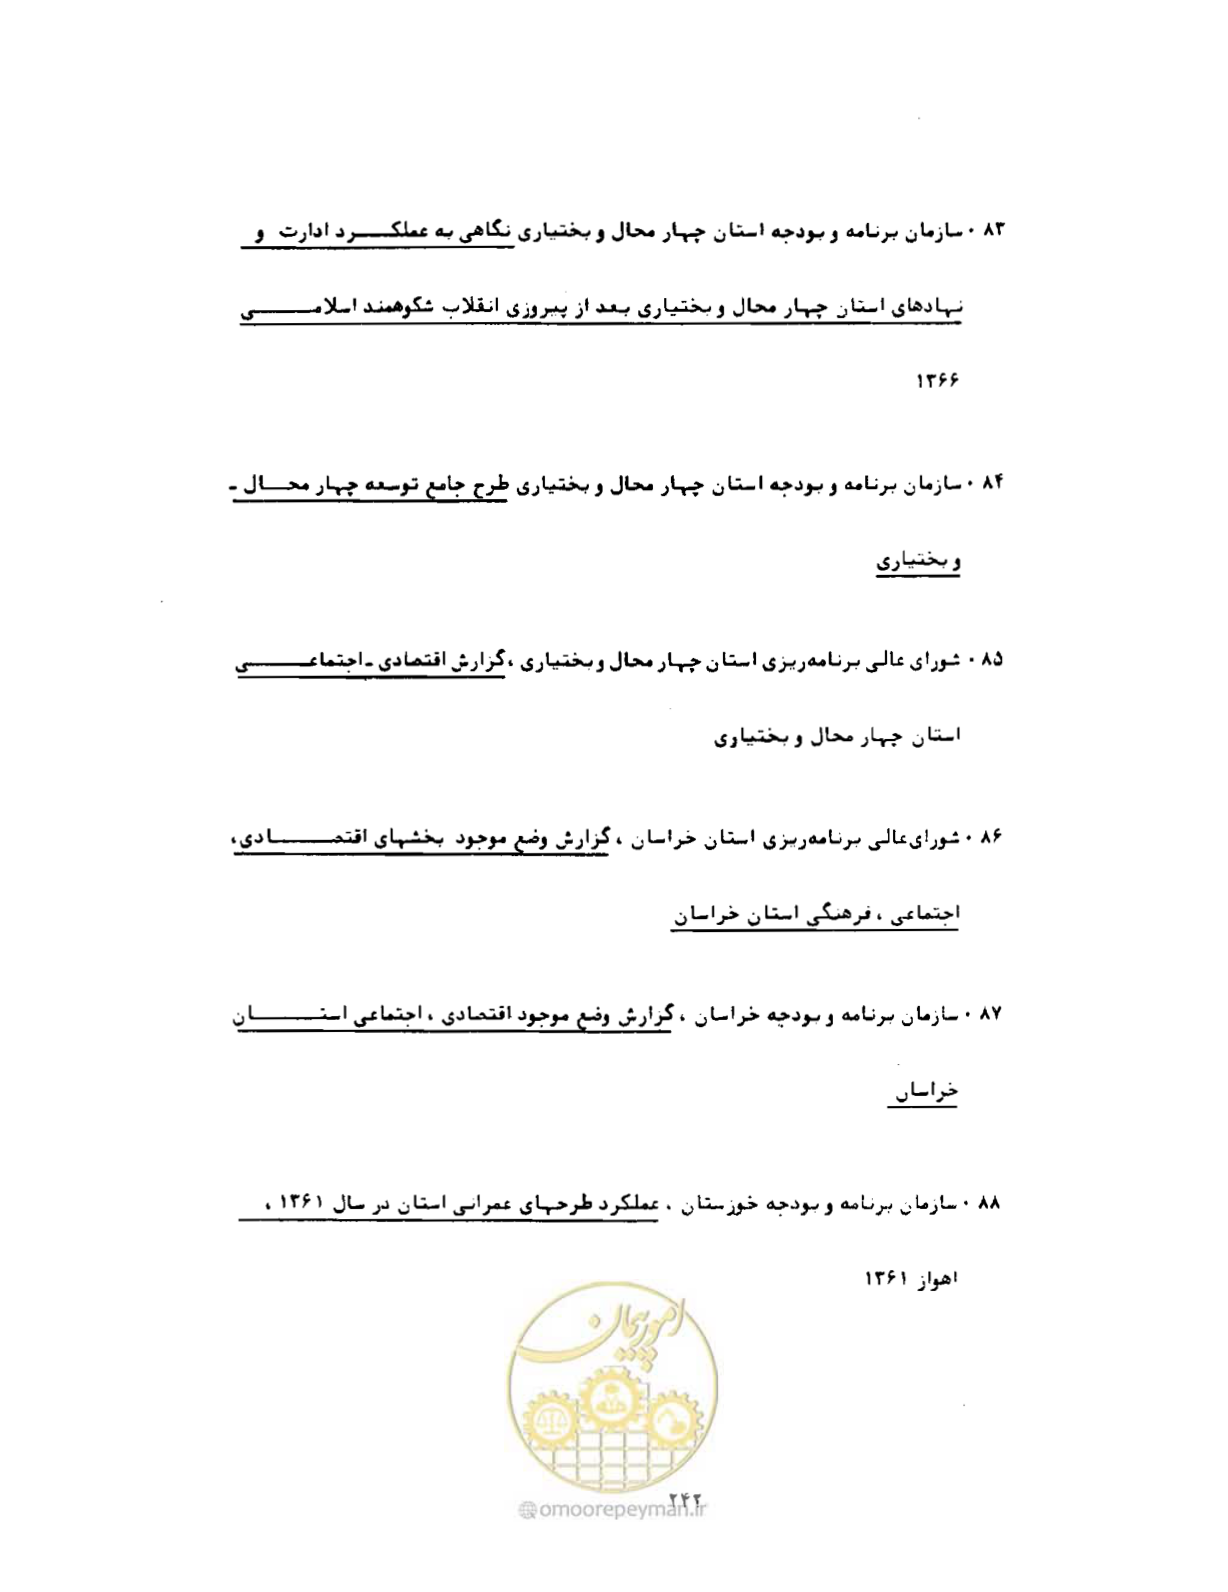 ۸۳ ۰ سازمان برنامه و بودجه استان چهار محال و بختیاری نگاهی به عملکـــرد ادارت و
نهادهای استان چهار محال و بختیاری بعد از پیروزی انقلاب شکوهمند اسلامـــی
۱۳۶۶
۸۴ ۰ سازمان برنامه و بودجه استان چهار محال و بختیاری طرح جامع توسعه چهار محـــال -
و بختیاری
۸۵ ۰ شورای عالی برنامه‌ریزی استان چهار محال و بختیاری ، گزارش اقتصادی - اجتماعـــی
استان چهار محال و بختیاری
۸۶ ۰ شورای‌عالی برنامه‌ریزی استان خراسان ، گزارش وضع موجود بخشهای اقتصـــادی،
اجتماعی ، فرهنگی استان خراسان
۸۷ ۰ سازمان برنامه و بودجه خراسان ، گزارش وضع موجود اقتصادی ، اجتماعی استـــان
خراسان
۸۸ ۰ سازمان برنامه و بودجه خوزستان ، عملکرد طرحهای عمرانی استان در سال ۱۳۶۱ ،
اهواز ۱۳۶۱
امور پیمان
۲۴۲
omoorepeyman.ir